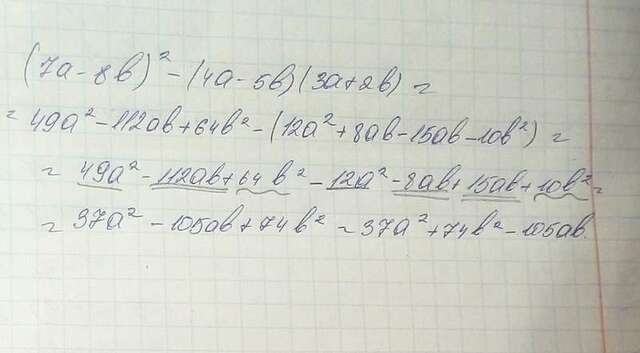 (7a-8b)²-(4a-5b)(3a+2b)=
=49a²-112ab+64b²-(12a²+8ab-15ab-10b²)=
=49a²-112ab+64b²-12a²-8ab+15ab+10b²=
=37a²-105ab+74b²=37a²+74b²-105ab